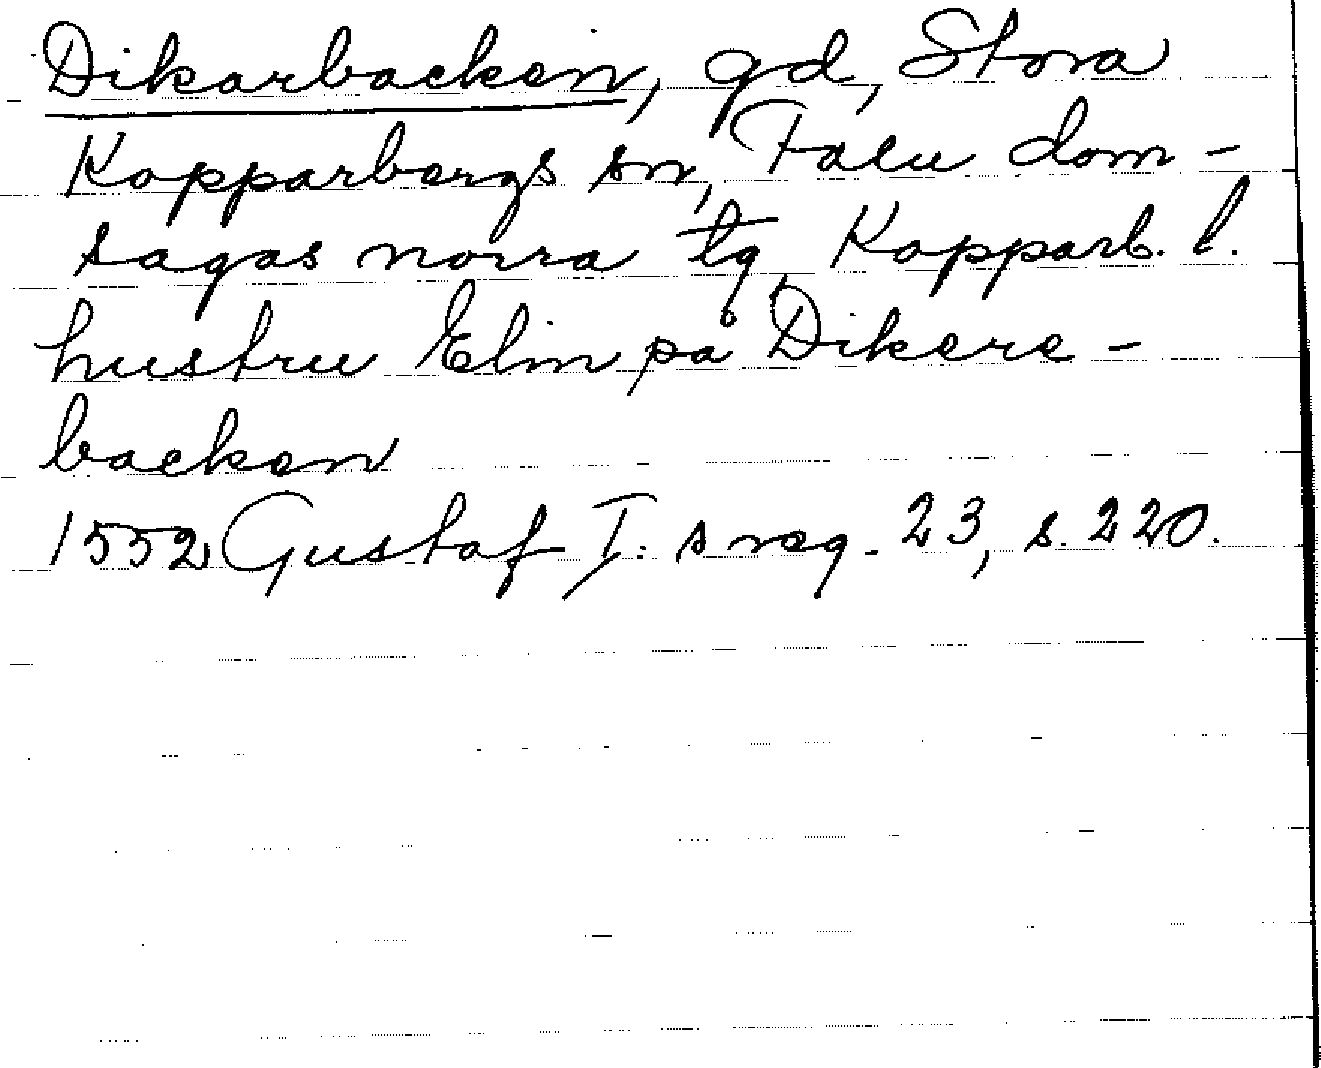 Dikarbacken, gd, Stora
Kopparbergs sn, Falu dom-
sagas norra tg, Kopparb. l.
hustru Elin på Dikere-
backen
1552 Gustaf I:s reg. 23, s. 220.